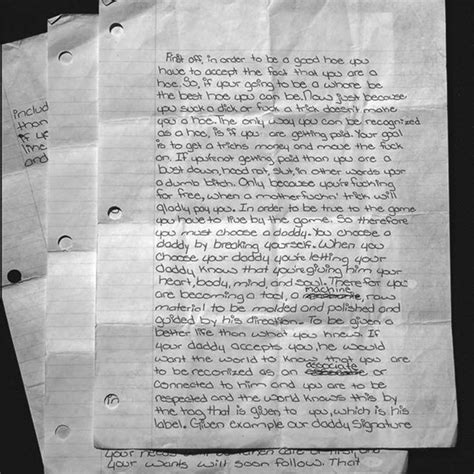 includ
than
if ye
line
and
First off, in order to be a good hoe you
have to accept the fact that you are a
hoe. So, if your going to be a whore be
the best hoe you can be. Now just because
you suck a dick or fuck a trick doesn't make
you a hoe. The only way you can be recognized
as a hoe, is if you are getting paid. Your goal
is to get a tricks money and move the fuck
on. If you're not getting paid than you are a
bust down, hood rat, slut, in other words your
a dumb bitch. Only because you're fucking
for free, when a motherfuckn' trick will
gladly pay you. In order to be true to the game
you have to live by the game. So therefore
you must choose a daddy. You choose a
daddy by breaking yourself. When you
choose your daddy you're letting your
daddy know that you're giving him your
heart, body, mind, and soul. Therefor you
are becoming a tool, a machine, raw
material to be molded and polished and
guided by his direction. To be given a
better life than what you knew. If
your daddy accepts you, he would
want the world to know that you are
to be reconized as an associate or
connected to him and you are to be
respected and the world knows this by
the tag that is given to you, which is his
label. Given example our daddy Signature
your needs
your wants will soon follow. That